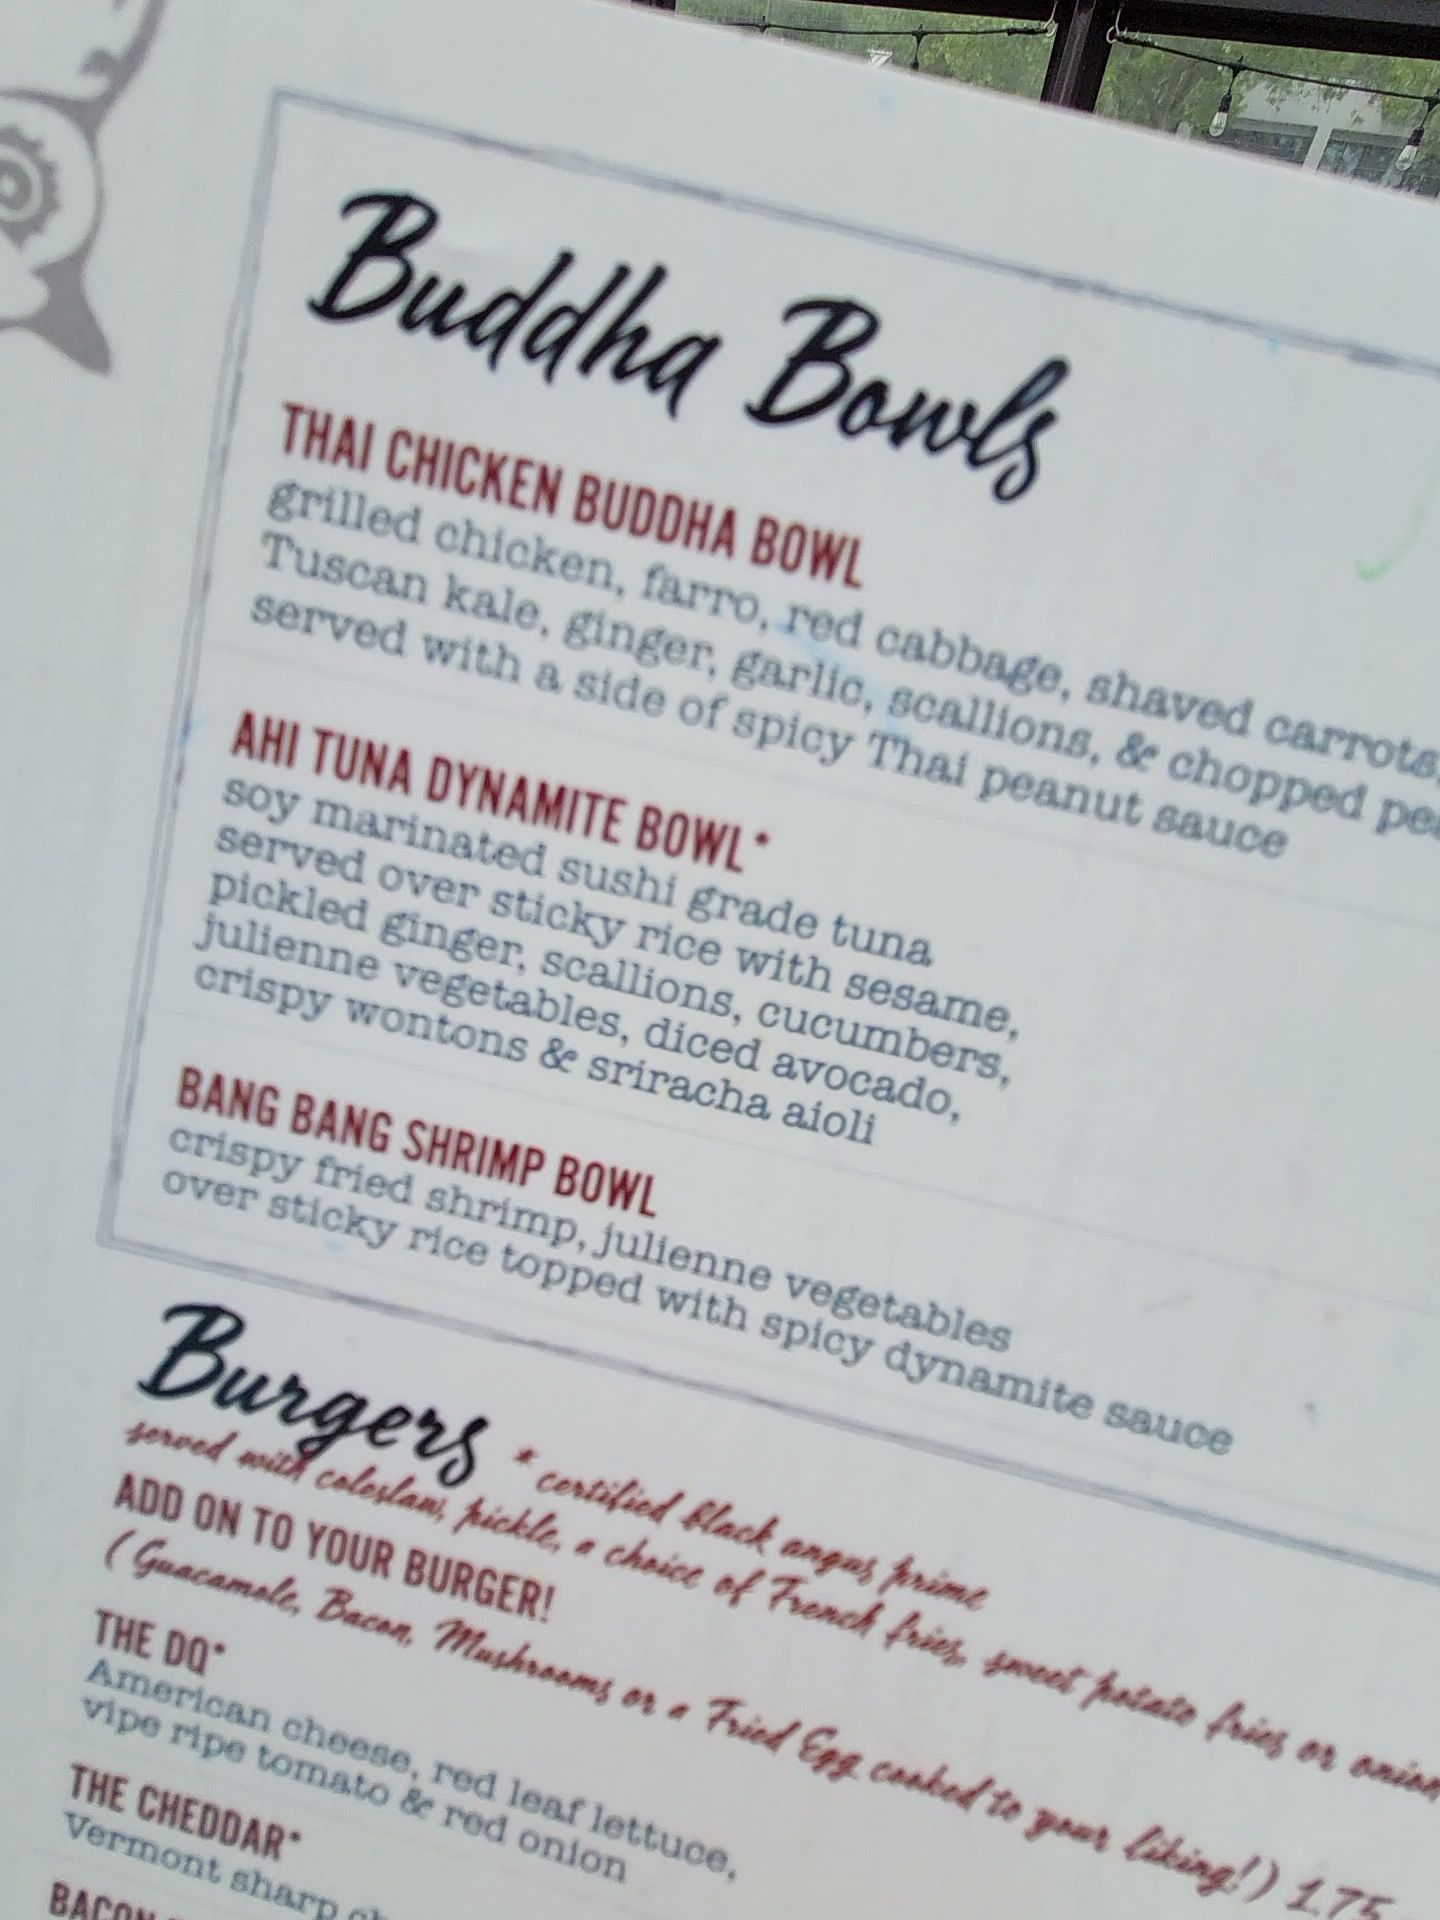 Buddha Bowls
THAI CHICKEN BUDDHA BOWL
grilled chicken, farro, red cabbage, shaved carrots,
Tuscan kale, ginger, garlic, scallions, & chopped
served with a side of spicy Thai peanut sauce
AHI TUNA DYNAMITE BOWL*
soy marinated sushi grade tuna
served over sticky rice with sesame,
pickled ginger, scallions, cucumbers,
julienne vegetables, diced avocado,
crispy wontons & sriracha aioli
BANG BANG SHRIMP BOWL
crispy fried shrimp, julienne vegetables
over sticky rice topped with spicy dynamite sauce
Burgers * certified black angus prime
served with coleslaw, pickle, a choice of French fries, sweet potato fries or onion
ADD ON TO YOUR BURGER!
(Guacamole, Bacon, Mushrooms or a Fried Egg cooked to your liking!) 1.75
THE DQ*
American cheese, red leaf lettuce,
vipe ripe tomato & red onion
THE CHEDDAR*
Vermont sharp
BACON